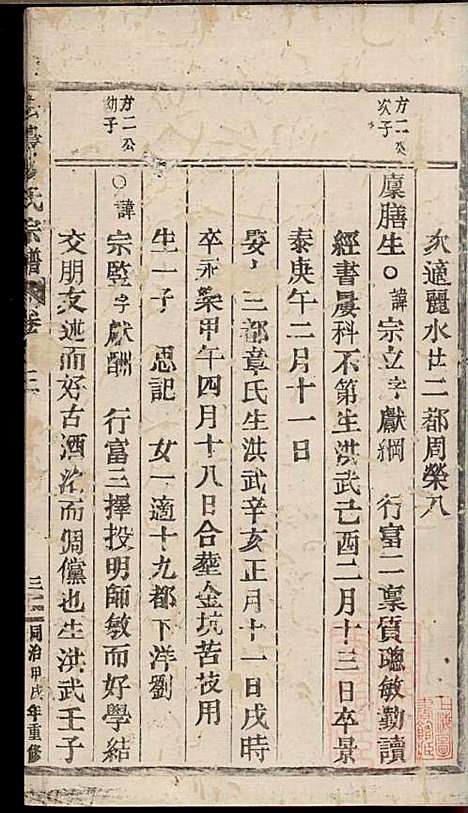 次適麗水廿二都周榮八
方二公
次子
廩膳生○諱宗立字獻綱 行富二稟質聰敏勤讀
經書屢科不第生洪武己酉二月十三日卒景
泰庚午二月十一日
娶 三都章氏生洪武辛亥正月十一日戌時
卒永樂甲午四月十八日合塟金坑苦技用
生一子 思記 女一適十九都下洋劉
方二公
幼子
○諱宗監字獻酬 行富三擇投明師敏而好學結
交朋友述而好古酒 而倜儻也生洪武壬子
氏宗譜 卷 三
同治甲戌年重修